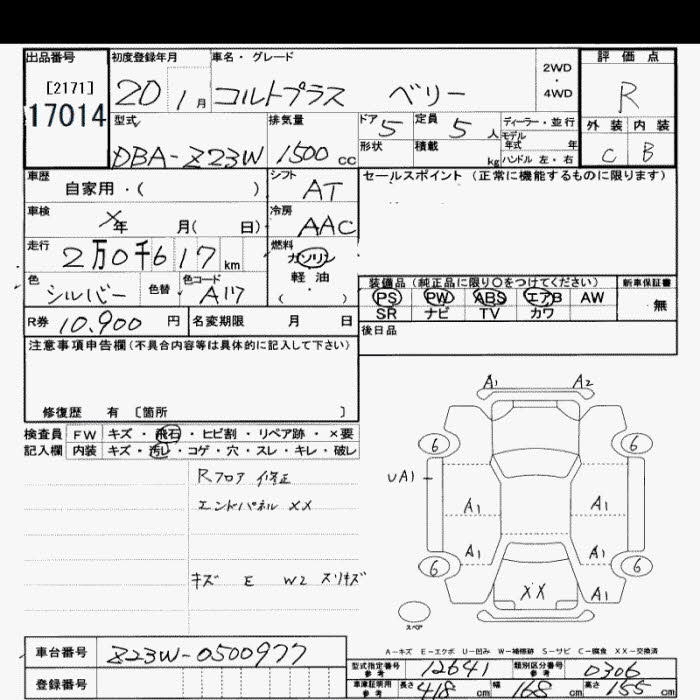 出品番号
[2171]
17014
初度登録年月
20 1月
車名・グレード
コルトプラス ベリー
2WD
・
4WD
評価点
R
外装 内装
C B
型式
DBA-Z23W
排気量
1500 cc
ドア 5
定員 5 人
ディーラー・並行
モデル
年式 年
形状
積載 kg
ハンドル 左・右
車歴
自家用・( )
シフト
AT
セールスポイント(正常に機能するものに限ります)
車検
X年 月( 日)
冷房
AAC
走行
2万0千617 km
燃料
ガソリン
軽油
( )
色
シルバー
色替
色コード
A17
装備品(純正品に限り○をつけてください)
PS PW ABS エアB AW
SR ナビ TV カワ
新車保証書
無
R券 10,900 円
名変期限 月 日
後日品
注意事項申告欄(不具合内容等は具体的に記入して下さい)
修復歴 有 〔箇所 〕
検査員 FW キズ・飛石・ヒビ割・リペア跡・×要
記入欄 内装 キズ・汚レ・コゲ・穴・スレ・キレ・破レ
Rフロア 修正
エンドパネル XX
キズ E W2 スリキズ
A1 A2
6 6
UA1
A1 A1
A1 A1
6 6
XX A1
スペア
A-キズ E-エクボ U-凹み W-補修跡 S-サビ C-腐食 XX-交換済
車台番号 Z23W-0500977
登録番号
型式指定番号 参考 12641 類別区分番号 参考 0306
車庫証明用 参考 長さ 418 cm 幅 168 cm 高さ 155 cm